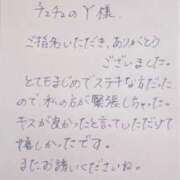 チュチュのY様
ご指名いただき、ありがとう
ございました。
とてもまじめでステキな方だった
ので、私の方が緊張しちゃった。
キスが良かったと言っていただけて
嬉しかったです。
またお誘いくださいね。